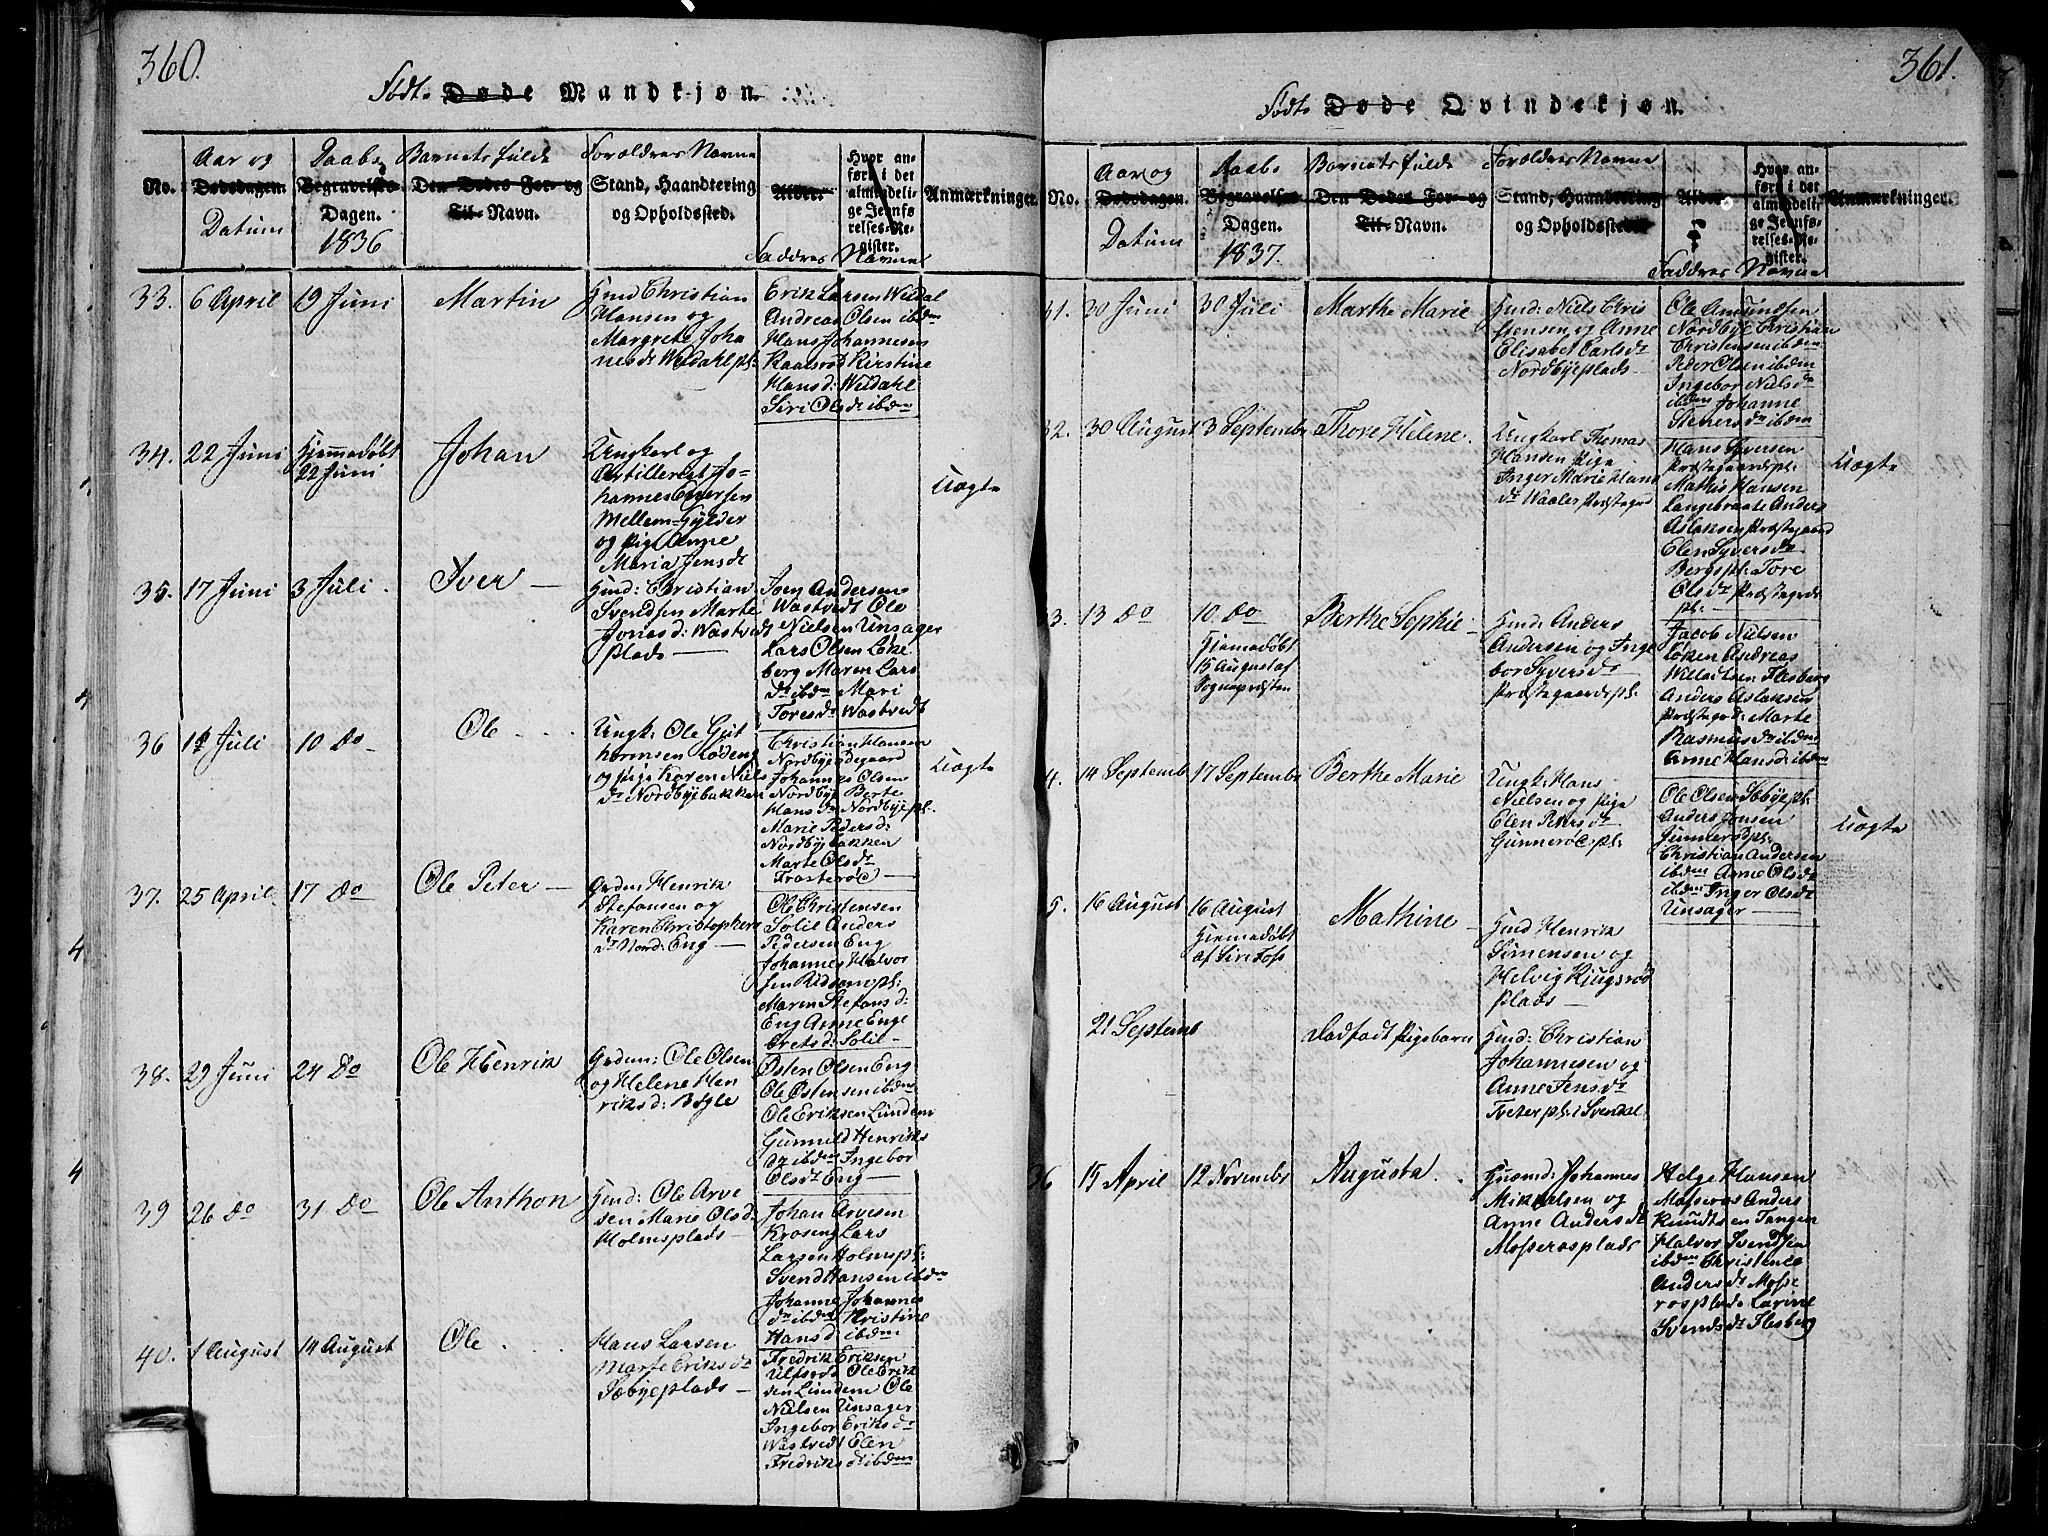 360.
Født. Døde Mandkjøn.
No.
Aar og
Dødsdagen.
Datum
Daabs
Begravelses
Dagen.
1836
Barnets fulde
Den Dødes For- og
Til-Navn.
Forældres Navne
Stand, Haandtering
og Opholdssted.
Alder.
Hvor an-
ført i det
almindeli-
ge Jevnfø-
relses-Re-
gister.
Faddres Navne
Anmærkninger.
33. 6 April 19 Juni Martin
Huusmd Christian
Hansen og
Margrete Joha
nesdr Wildahl pl:
Erik Larsen Wildal
Andreas Olsen ibdm
Hans Johannesen
Raasrød Kirstine
Hansd: Wildahl
Siri Olsdr ibdm
34. 22 Juni Hjemmedøbt
22 Juni
Johan
Ungkarl og
Artillerist Jo-
hannes Eversen
Mellem-Gylder
og Pige Anne
Maria Jensdr
Uægte
35. 17 Juni 3 Juli. Iver —
Huusmd: Christian
Svendsen Marte
Jonasd: Wastvedt
plads —
Joen Andersen
Wastvedt Ole
Nielsen Unsager
Lars Olsen Løke
berg Maren Lars
dr ibdm Mari
Toresdr Wastvedt
36 10 Juli 10 Do Ole
Ungk: Ole Gut
tormsen Lødeng
og Pige Karen Niels
dr Nordbyebakken
Christian Hansen
Nordbyeødegaard
Johannes Olsen
Nordbye Berte
Hansdr Nordbyepl.
Marie Pedersd:
Nordbyebakken
Marte Olsdr
Frosterød —
Uægte
37. 25 April 17 Do Ole Peter —
Grdm: Henrik
Stefansen og
Karen Christophers
dr Nord: Eng —
Ole Christensen
Solli Anders
Pedersen Eng
Johannes Halvor
sen Ridsem pl:
Maren Stefansd:
Eng Anne Enge
bretsd: Solli —
38. 29 Juni 24 Do Ole Henrik
Grdm: Ole Olsen
og Helene Hen
riksd: Bøgle
Østen Olsen Eng
Ole Østensen ibdm
Ole Eriksen Lundem
Gunnild Henriks
dr ibdm Ingebor
Olsdr Eng —
39 26 Do 31 Do Ole Anthon
Huusmd: Ole Arve
sen Marie Olsd:
Holmsplads —
Johan Arvesen
Kroseng Lars
Larsen Holmspl:
Svend Hansen ibdm
Johanne Johannes
dr ibdm Kristine
Hansd ibdm
40. 1 August 14 August Ole
Hans Larsen
Marte Eriksdr
Sæbyeplads —
Fredrik Eriksen
Ulfsrød Ole Erik
sen Lundem Ole
Nielsen Unsager
Ingebor Eriksdr
Wastvedt Elen
Fredriksdr ibdm
361.
Født Døde Qvindekjøn.
No.
Aar og
Dødsdagen.
Datum
Daabs
Begravelses
Dagen.
1837.
Barnets fulde
Den Dødes For- og
Til-Navn.
Forældres Navne
Stand, Haandtering
og Opholdssted
Alder.
Hvor an-
ført i det
almindeli-
ge Jevnfø-
relses-Re-
gister.
Faddres Navne
Anmærkninger.
31. 30 Juni 30 Juli Marthe Marie
Huusmd: Niels Chris
tensen og Anne
Elisabet Carlsdr
Nordbyeplads
Ole Amundsen
Nordbye Christian
Christensen ibdm
Peder Olsen ibdm
Ingebor Nielsdr
ibdm Johanne
Stenersdr ibdm
32. 30 August 3 Septembr Thore Helene.
Ungkarl Thomas
Hansen Pige
Inger Marie Hans
dr Waaler Præstegrd
Hans Syversen
Præstegaardspl:
Mathis Hansen
Langebraate Anders
Aslaksen Præstegaard
Elen Syversdr
Bergspl: Tore
Olsdr Præstegrds
pl: —
Uægte
33. 13 Do 10. Do
Hjemmedøbt
15 August af
Sognepræsten
Berthe Sophie —
Huusmd: Anders
Andersen og Inge
bor Syversdr
Præstegaardspl:
Jacob Nielsen
Løken Andreas
Willadsen Flesberg
Anders Aslaksen
Præstegrd: Marte
Rasmusdr ibdm
Anne Hansd: ibdm
4. 14 Septemb 17 Septembr Berthe Marie
Ungk: Hans
Nielsen og Pige
Elen Pedersdr
Gunnerød pl:
Ole Olsen Sæbye pl:
Anders Jensen
Gunnerød pl:
Christian Andersen
ibdm Arne Olsdr
ibdm Inger Olsdr
Unsager —
Uægte
5. 16 August 16 August
Hjemmedøbt
af Siri Foss
Mathine —
Huusmd Henrik
Simensen og
Helvig Kiugsrød
plads —
21 Septemb Dødfødt Pigebarn
Huusmd: Christian
Johannesen og
Anne Jensdr
Tveter pl: i Svendal
36 15 April 12 Novembr Augusta.
Huusmd: Johannes
Mikkelsen og
Anne Andersdr
Mosserosplads
Helge Hansen
Mosseros Anders
Knudtsen Tangen
Halvor Svendsen
ibdm Christense
Andersdr Mosse
rosplads Larine
Svendsdr Flesberg